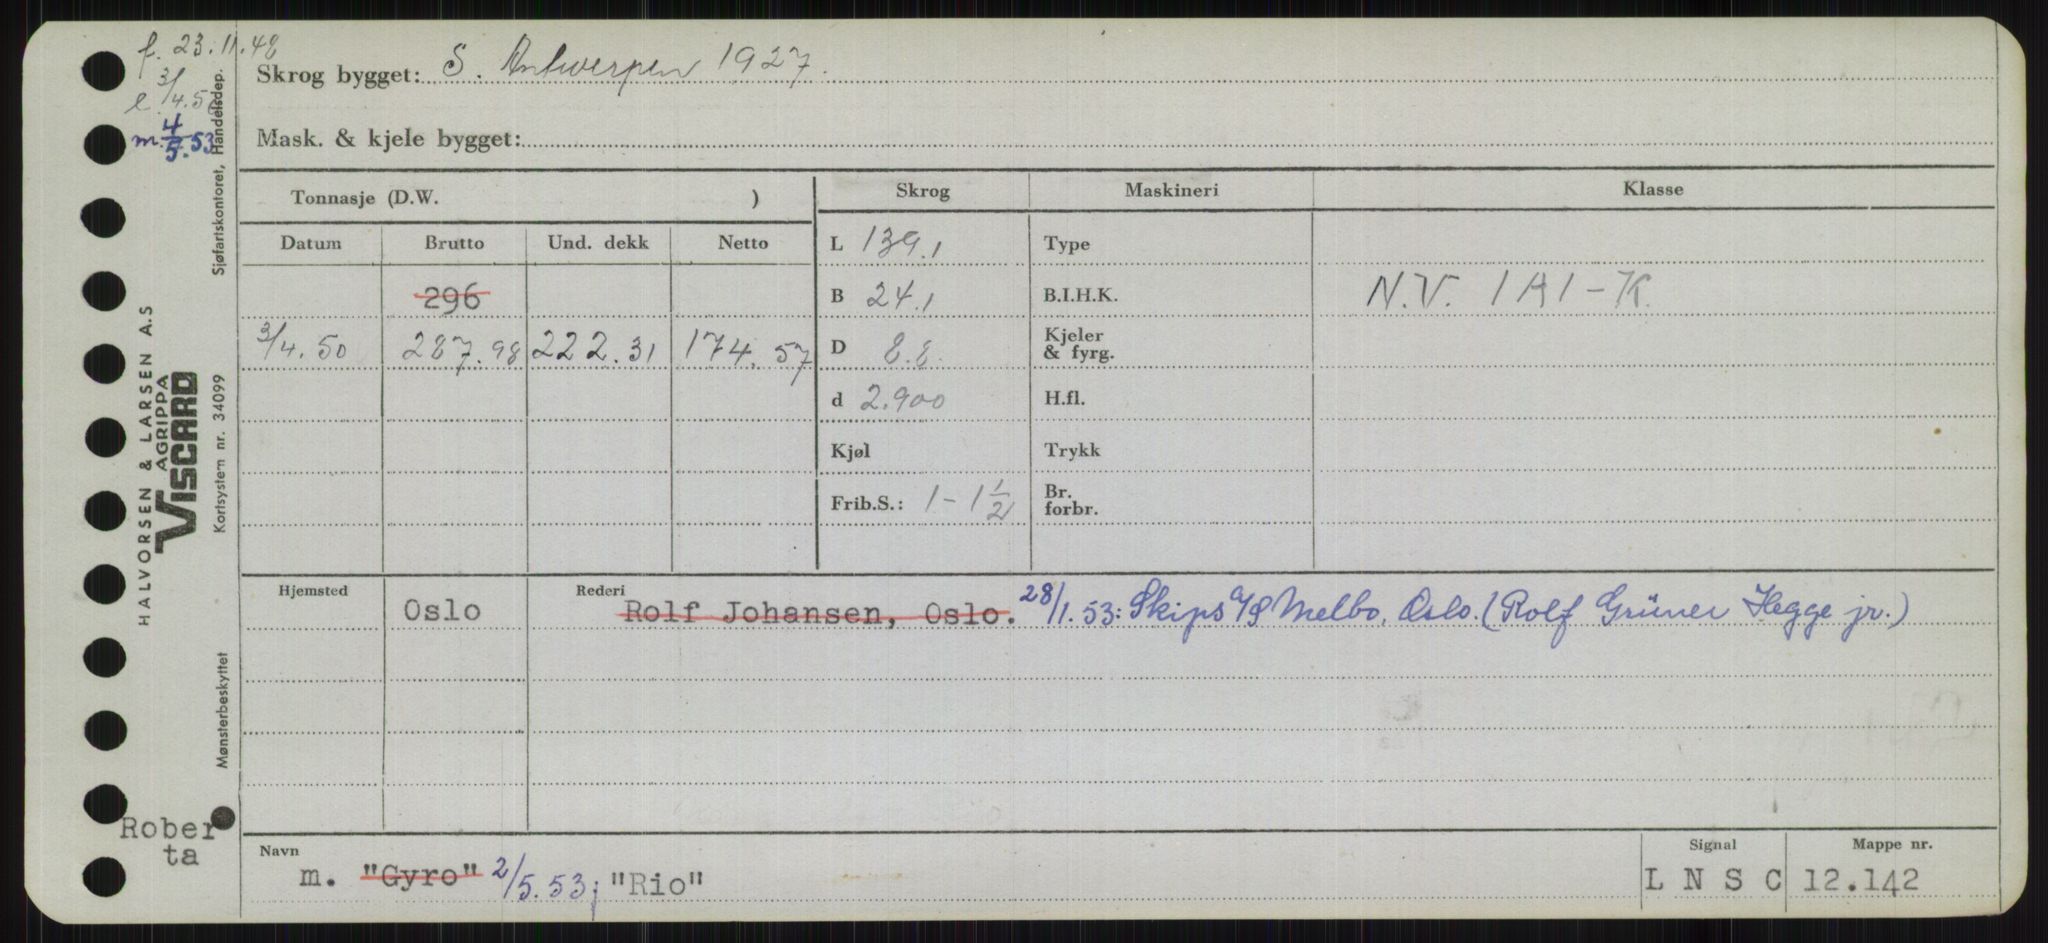 f. 23.11.48
Skrog bygget: S. Antwerpen 1927.
e 3/4.50
m. 4/5.53
Mask. & kjele bygget:
Sjøfartskontoret, Handelsdep.
HALVORSEN & LARSEN A.S
AGRIPPA
VISCARD
Kortsystem nr. 34099
Mønsterbeskyttet
Tonnasje (D.W. ) Skrog Maskineri Klasse
Datum Brutto Und. dekk Netto L 139,1 Type
296 B 24,1 B.I.H.K. N.V. 1A1-K.
3/4.50 287.98 222.31 174.57 D 8.8. Kjeler & fyrg.
d 2.900 H.fl.
Kjøl Trykk
Frib.S.: 1-1 1/2 Br. forbr.
Hjemsted Rederi
Oslo Rolf Johansen, Oslo. 28/1.53: Skips A/S Melbo, Oslo. (Rolf Grüner Hegge jr.)
Rober
ta
Navn Signal Mappe nr.
m. "Gyro" 2/5.53; "Rio" L N S C 12.142